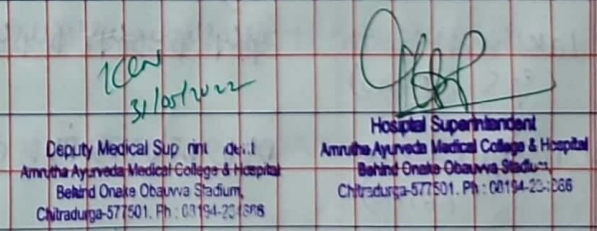 31/05/2022
Deputy Medical Sup rint dent
Amrutha Ayurveda Medical College & Hospital
Behind Onake Obavva Stadium,
Chitradurga-577501. Ph : 08194-
Hospital Superintendent
Amrutha Ayurveda Medical College & Hospital
Behind Onake Obavva Stadium,
Chitradurga-577501. Ph : 08194-